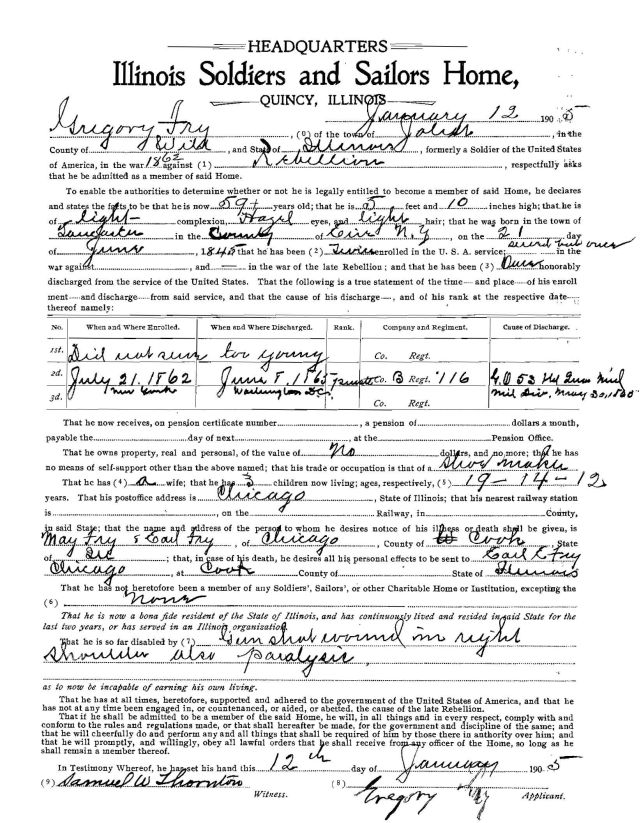 HEADQUARTERS
Illinois Soldiers and Sailors Home,
QUINCY, ILLINOIS January 12 1905
Gregory Fry, (0) of the town of Joliet, in the
County of Will, and State of Illinois, formerly a Soldier of the United States
of America, in the war 1862 against (1) Rebellion, respectfully asks
that he be admitted as a member of said Home.
To enable the authorities to determine whether or not he is legally entitled to become a member of said Home, he declares
and states the facts to be that he is now 59 years old; that he is 5 feet and 10 inches high; that he is
of light complexion, Hazel eyes, and light hair; that he was born in the town of
Lancaster in the County of Erie N.Y, on the 21 day
of June, 1845 that he has been (2) Twice enrolled in the U. S. A. service; served but once in the
war against, and in the war of the late Rebellion; and that he has been (3) Once honorably
discharged from the service of the United States. That the following is a true statement of the time and place of his enroll
ment and discharge from said service, and that the cause of his discharge, and of his rank at the respective date
thereof namely:
No. When and Where Enrolled. When and Where Discharged. Rank. Company and Regiment. Cause of Discharge.
1st. Did not serve too young Co. Regt.
2d. July 21. 1862 June 8. 1865 Private Co. B Regt. 116 G.O 53 Hd Qurs Mid
3d. New York Washington D.C. Co. Regt. Mil Div, May 30, 1865
That he now receives, on pension certificate number, a pension of dollars a month,
payable the day of next, at the Pension Office.
That he owns property, real and personal, of the value of No dollars, and no more; that he has
no means of self-support other than the above named; that his trade or occupation is that of a Shoe maker
That he has (4) a wife; that he has 3 children now living; ages, respectively, (5) 19-14-12
years. That his postoffice address is Chicago, State of Illinois; that his nearest railway station
is, on the Railway, in County,
in said State; that the name and address of the person to whom he desires notice of his illness or death shall be given, is
May Fry & Earl Fry, of Chicago, County of Cook, State
of Ill; that, in case of his death, he desires all his personal effects to be sent to Earl E Fry
Chicago, at Cook County of State of Illinois
That he has not heretofore been a member of any Soldiers', Sailors', or other Charitable Home or Institution, excepting the
(6) None
That he is now a bona fide resident of the State of Illinois, and has continuously lived and resided in said State for the
last two years, or has served in an Illinois organization.
That he is so far disabled by (7) Gun shot wound in right
shoulder also paralysis,
as to now be incapable of earning his own living.
That he has at all times, heretofore, supported and adhered to the government of the United States of America, and that he
has not at any time been engaged in, or countenanced, or aided, or abetted, the cause of the late Rebellion.
That if he shall be admitted to be a member of the said Home, he will, in all things and in every respect, comply with and
conform to the rules and regulations made, or that shall hereafter be made, for the government and discipline of the same; and
that he will cheerfully do and perform any and all things that shall be required of him by those there in authority over him; and
that he will promptly, and willingly, obey all lawful orders that he shall receive from any officer of the Home, so long as he
shall remain a member thereof.
In Testimony Whereof, he has set his hand this 12th day of January 1905
(9) Samuel W Thornton (8) Gregory Fry
Witness. Applicant.